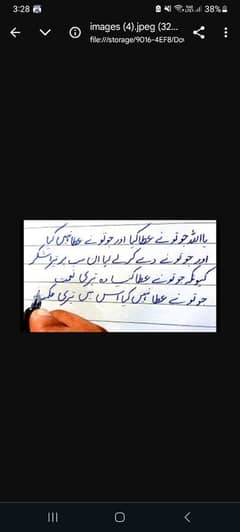 3:28
38%
images (4).jpeg (32...
file:///storage/9016-4EF8/Do
یا اللہ جو تو نے عطا کیا اور جو تو نے عطا نہیں کیا
اور جو تو نے دے کر لے لیا ان سب پر تیرا شکر
کیونکہ جو تو نے عطا کیا وہ تیری نعمت
جو تو نے عطا نہیں کیا اس میں تیری